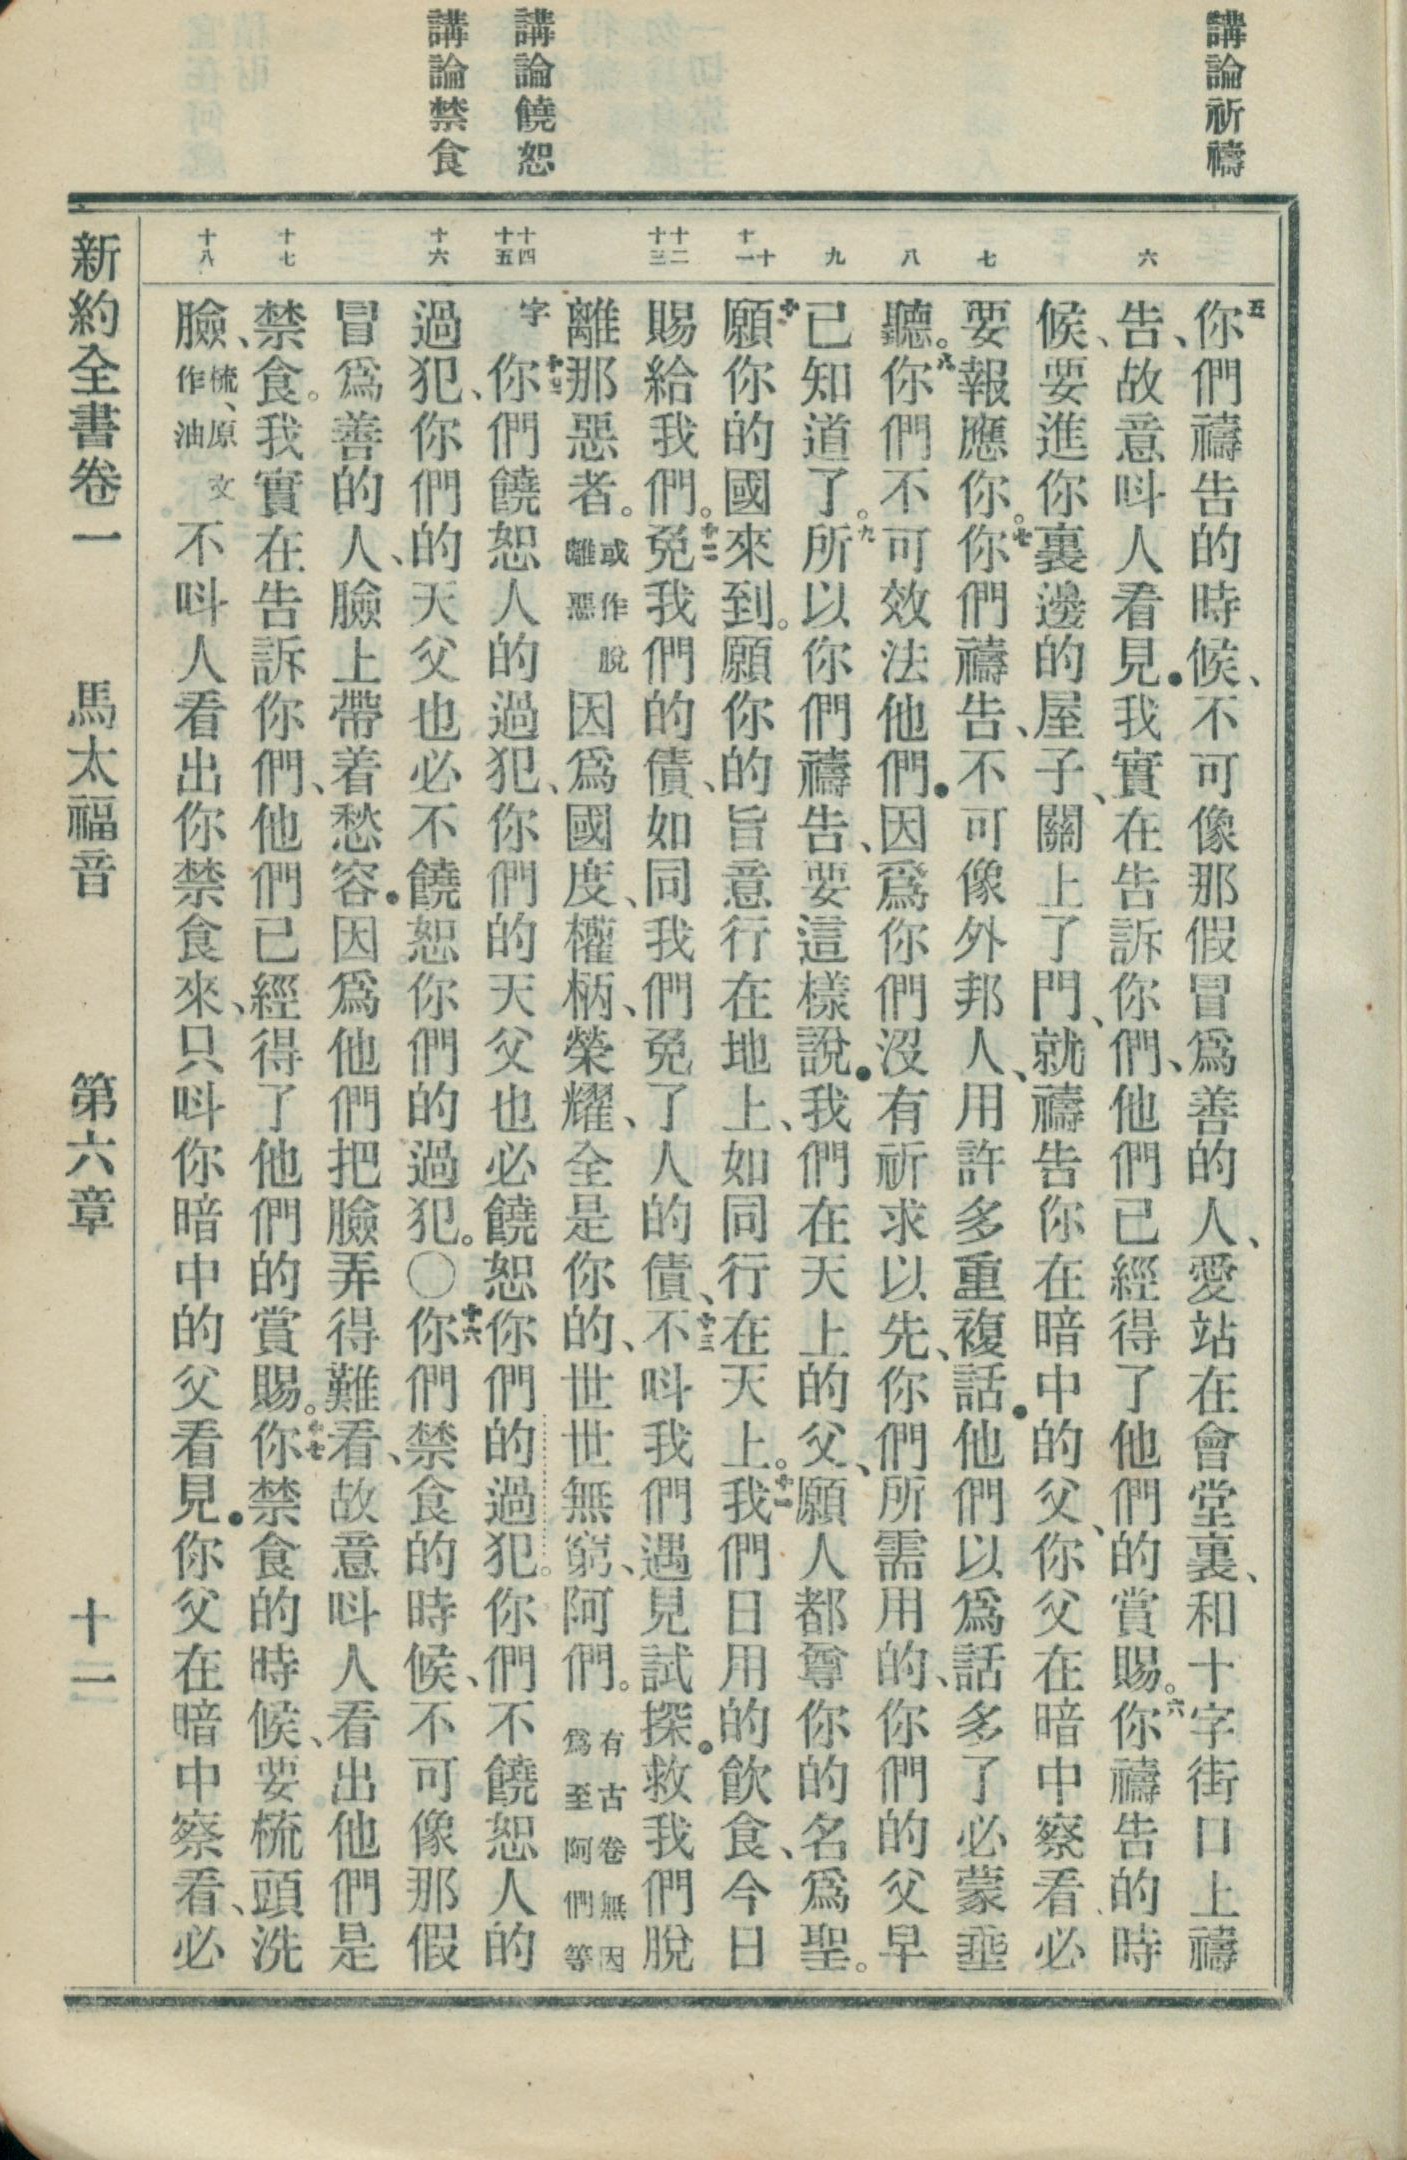 講論祈禱
講論饒恕
講論禁食
六
七
八
九
十
十一
十二
十三
十四
十五
十六
十七
十八
五你們禱告的時候、不可像那假冒爲善的人、愛站在會堂裏、和十字街口上禱
告、故意呌人看見．我實在告訴你們、他們已經得了他們的賞賜。六你禱告的時
候、要進你裏邊的屋子、關上了門、就禱告你在暗中的父、你父在暗中察看必
要報應你。七你們禱告、不可像外邦人、用許多重複話．他們以爲話多了必蒙垂
聽。八你們不可效法他們．因爲你們沒有祈求以先、你們所需用的、你們的父早
已知道了。九所以你們禱告、要這樣說．我們在天上的父、願人都尊你的名爲聖。
十願你的國來到。願你的旨意行在地上、如同行在天上。十一我們日用的飲食、今日
賜給我們。十二免我們的債、如同我們免了人的債、十三不呌我們遇見試探．救我們脫
離那惡者。或作脫離惡因爲國度、權柄、榮耀、全是你的、世世無窮、阿們。有古卷無因爲至阿們等
字十四你們饒恕人的過犯、你們的天父也必饒恕你們的過犯。你們不饒恕人的
過犯、你們的天父也必不饒恕你們的過犯。〇十六你們禁食的時候、不可像那假
冒爲善的人、臉上帶着愁容．因爲他們把臉弄得難看、故意呌人看出他們是
禁食。我實在告訴你們、他們已經得了他們的賞賜。十七你禁食的時候、要梳頭洗
臉、梳、原文作油不呌人看出你禁食來、只呌你暗中的父看見．你父在暗中察看、必
新約全書卷一 馬太福音 第六章 十一